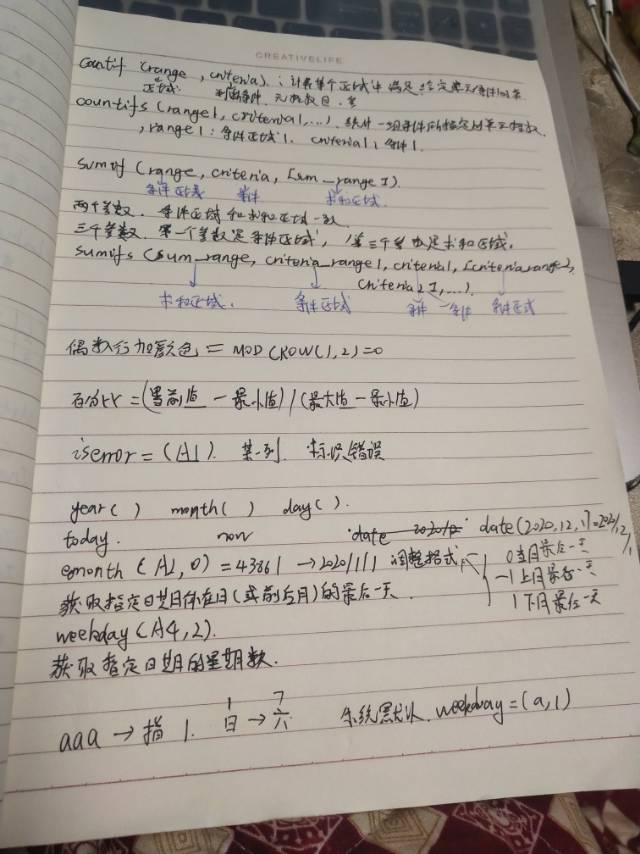 CREATIVELIFE
countif (range, criteria). : 计算某个区域中满足给定条件的
区域 判断条件
countifs (range1, criteria1, ...). 统计一组条件所指定的单元格数
, range1: 条件区域1. criteria1: 条件1.
sumif (range, criteria, [sum_range]).
条件区域 条件 求和区域.
两个参数. 条件区域和求和区域一致
三个参数. 第一个参数是条件区域, 第三个参数是求和区域.
sumifs (sum_range, criteria_range1, criteria1, [criteria range2,
criteria2], ...).
求和区域. 条件区域 条件 条件区域
偶数行加颜色 = MOD(ROW(),2)=0
百分比 = (当前值 - 最小值) / (最大值 - 最小值)
iserror = (A1). 某一列. 标识错误
year( ) month( ) day( ).
today. now date 2020/12 date(2020,12,1)=2020/12/1
emonth (A2, 0) = 43861 → 2020/1/1 调整格式.
0当月最后一天
-1上月最后一天
1下月最后一天
获取指定日期所在月(或前后月)的最后一天.
weekday (A4, 2).
获取指定日期的星期数.
1 7
aaa → 指 1. 日 → 六 系统默认. weekday=(a,1)